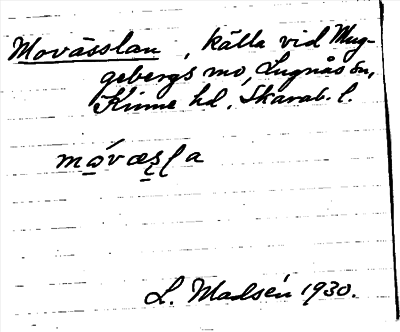 Movässlan, källa vid Mug-
gebergs mo, Lugnås sn,
Kinne hd, Skarab. l.
mǫ́væs̨l̨a
L. Madsén 1930.